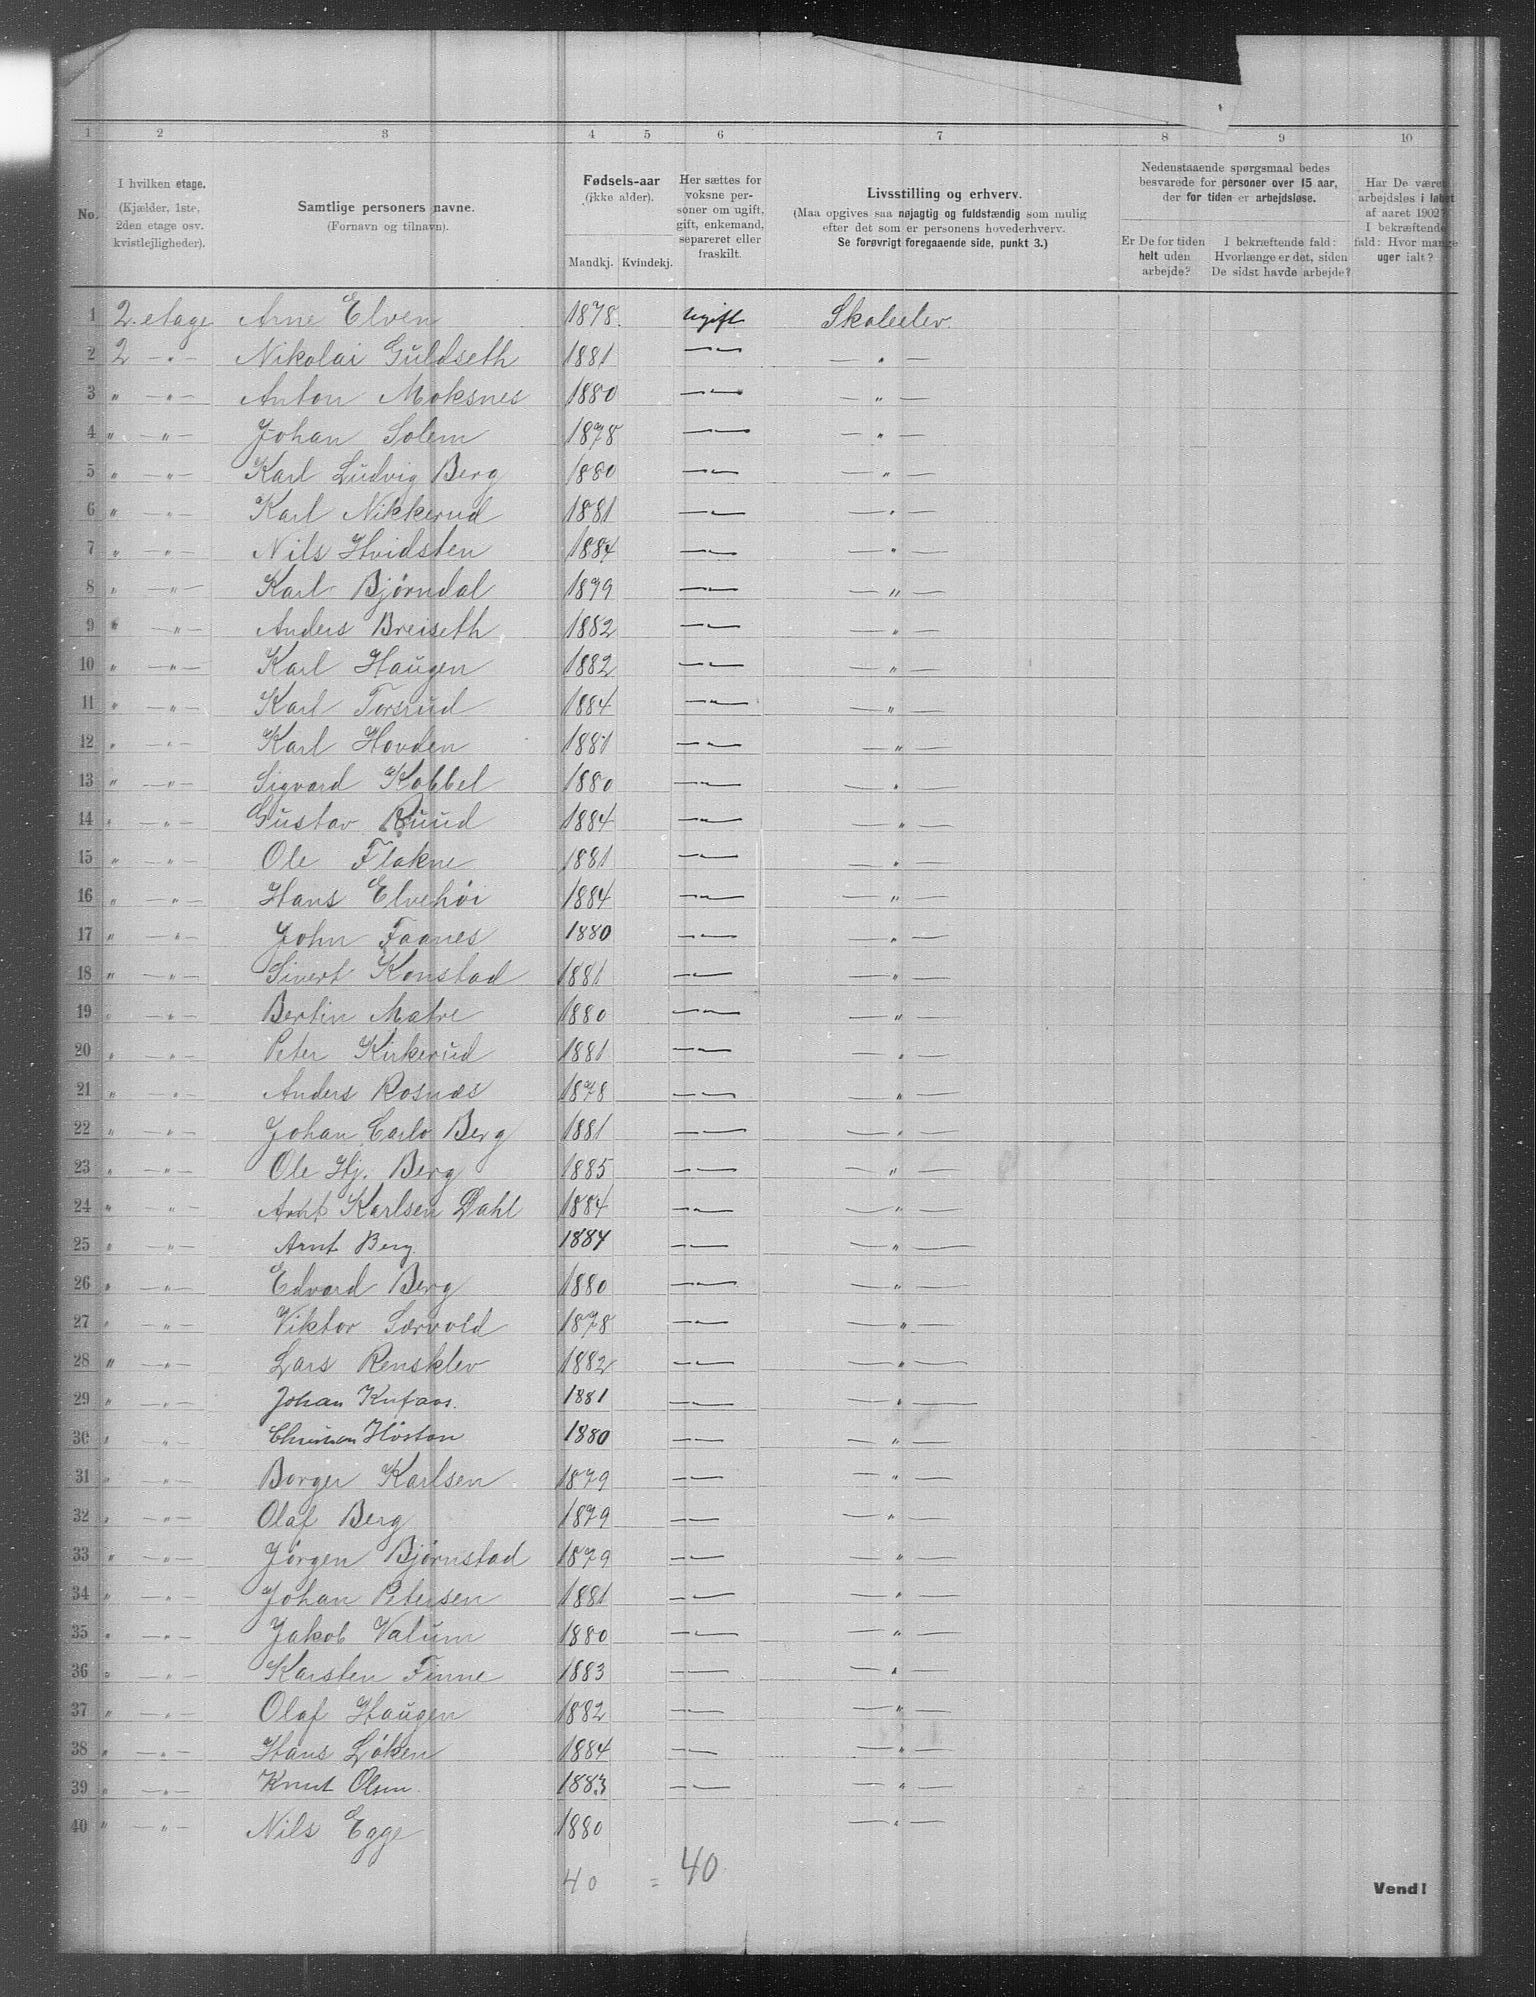 1 2 3 4 5 6 7 8 9 10
No.
I hvilken etage.
(Kjælder, 1ste,
2den etage osv.
kvistlejligheder).
Samtlige personers navne.
(Fornavn og tilnavn).
Fødsels-aar
(ikke alder).
Mandkj. Kvindekj.
Her sættes for
voksne per-
soner om ugift,
gift, enkemand,
separeret eller
fraskilt.
Livsstilling og erhverv.
(Maa opgives saa nøjagtig og fuldstændig som mulig
efter det som er personens hovederhverv.
Se forøvrigt foregaaende side, punkt 3.)
Nedenstaaende spørgsmaal bedes
besvarede for personer over 15 aar,
der for tiden er arbejdsløse.
Er De for tiden
helt uden
arbejde?
I bekræftende fald:
Hvorlænge er det, siden
De sidst havde arbejde?
Har De været
arbejdsløs i løbet
af aaret 1902?
I bekræftende
fald: Hvor mange
uger ialt?
1 2. etage Arne Elven 1878. ugift Skoleelev.
2 2 — " — Nikolai Guldseth 1881 — " — — " —
3 " — " — Anton Moksnes 1880 — " — — " —
4 " — " — Johan Solem 1878 — " — — " —
5 " — " — Karl Ludvig Berg 1880 — " — — " —
6 " — " — Karl Nikkerud 1881 — " — — " —
7 " — " — Nils Hvidsten 1884 — " — — " —
8 " — " — Karl Bjørndal 1879 — " — — " —
9 " — " — Anders Breiseth 1882 — " — — " —
10 " — " — Karl Haugen 1882 — " — — " —
11 " — " — Karl Torsrud 1884 — " — — " —
12 " — " — Karl Hovden 1881 — " — — " —
13 " — " — Sigvard Kobbel 1880 — " — — " —
14 " — " — Gustav Ruud 1884 — " — — " —
15 " — " — Ole Flakne 1881 — " — — " —
16 " — " — Hans Elvehøi 1884 — " — — " —
17 " — " — John Faanes 1880 — " — — " —
18 " — " — Sivert Konstad 1881 — " — — " —
19 " — " — Bertin Matre 1880 — " — — " —
20 " — " — Peter Kirkerud 1881 — " — — " —
21 " — " — Anders Rosnæs 1878 — " — — " —
22 " — " — Johan Carlo Berg 1881 — " — — " —
23 " — " — Ole Hj. Berg 1885 — " — — " —
24 " — " — Arnt Karlsen Dahl 1884 — " — — " —
25 " — " — Arnt Berg 1884 — " — — " —
26 " — " — Edvard Berg 1880 — " — — " —
27 " — " — Viktor Sørvold 1878 — " — — " —
28 " — " — Lars Rensklev 1882 — " — — " —
29 " — " — Johan 1881 — " — — " —
30 " — " — Christian Høston 1880 — " — — " —
31 " — " — Borger Karlsen 1879 — " — — " —
32 " — " — Olaf Berg 1879 — " — — " —
33 " — " — Jørgen Bjørnstad 1879 — " — — " —
34 " — " — Johan Petersen 1881 — " — — " —
35 " — " — Jakob Valum 1880 — " — — " —
36 " — " — Karsten Finne 1883 — " — — " —
37 " — " — Olaf Haugen 1882 — " — — " —
38 " — " — Hans Løken 1884 — " — — " —
39 " — " — Knut Olsen 1883 — " — — " —
40 " — " — Nils Egge 1880 — " —
40 = 40
Vend!